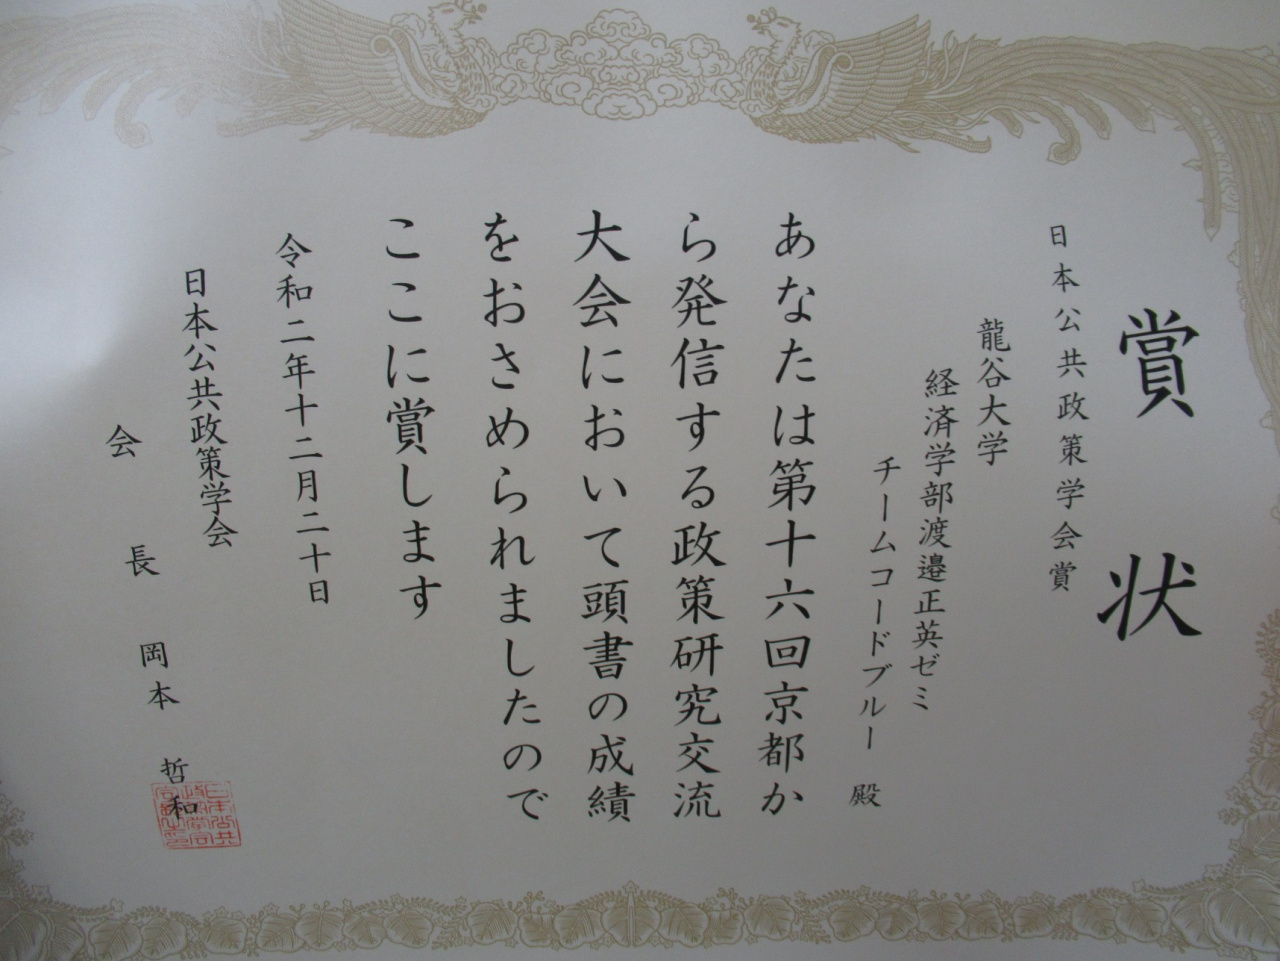 賞状
日本公共政策学会賞
龍谷大学
経済学部渡邉正英ゼミ
チームコードブルー 殿
あなたは第十六回京都か
ら発信する政策研究交流
大会において頭書の成績
をおさめられましたので
ここに賞します
令和二年十二月二十日
日本公共政策学会
会長 岡本 哲和